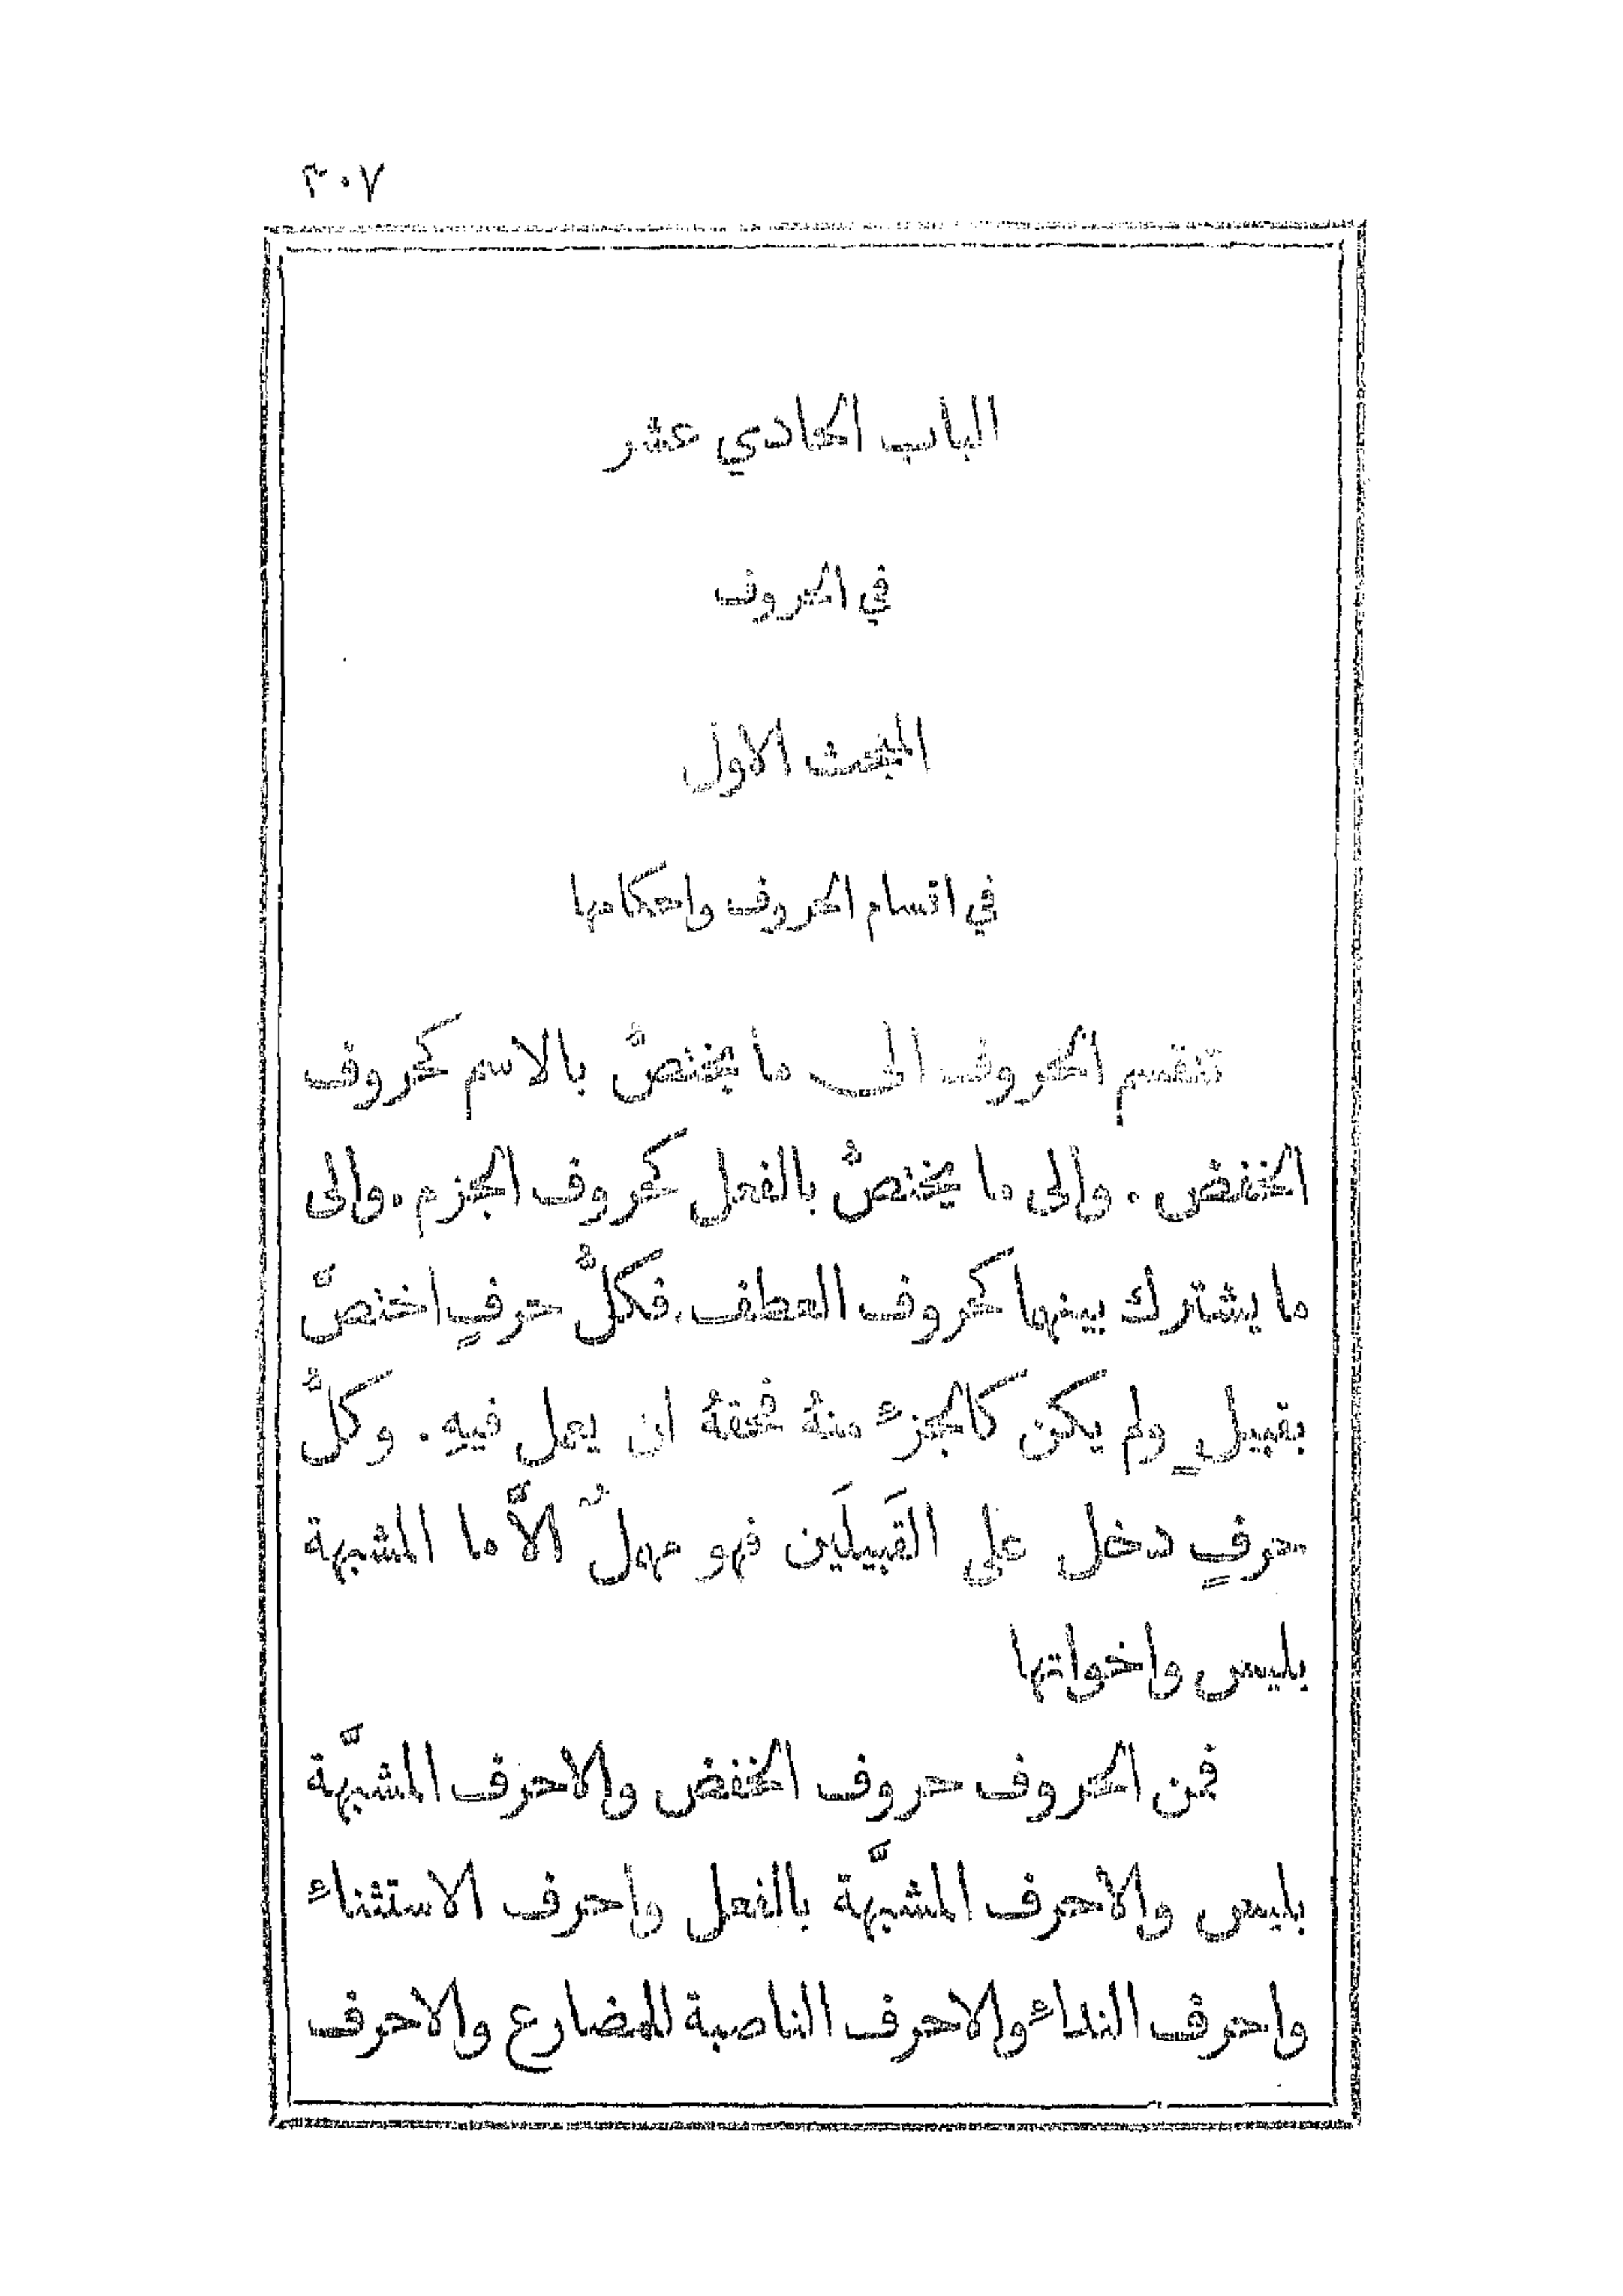 ٣٠٧
الباب الحادي عشر
في الحروف
المبحث الاول
في اقسام الحروف واحكامها
تنقسم الحروف الى ما يختصُّ بالاسم كحروف
الخفض . والى ما يختصُّ بالفعل كحروف الجزم . والى
ما يشترك بينهما كحروف العطف . فكلُّ حرفٍ اختصَّ
بقبيلٍ ولم يكن كالجزءِ منهُ فحقهُ ان يعمل فيهِ . وكلُّ
حرفٍ دخل على القَبيلَين فهو مهملٌ الَّا ما المشبهة
بليس واخواتها
فمن الحروف حروف الخفض والاحرف المشبَّهة
بليس والاحرف المشبَّهة بالفعل واحرف الاستثناءِ
واحرف النداءِ والاحرف الناصبة للمضارع والاحرف